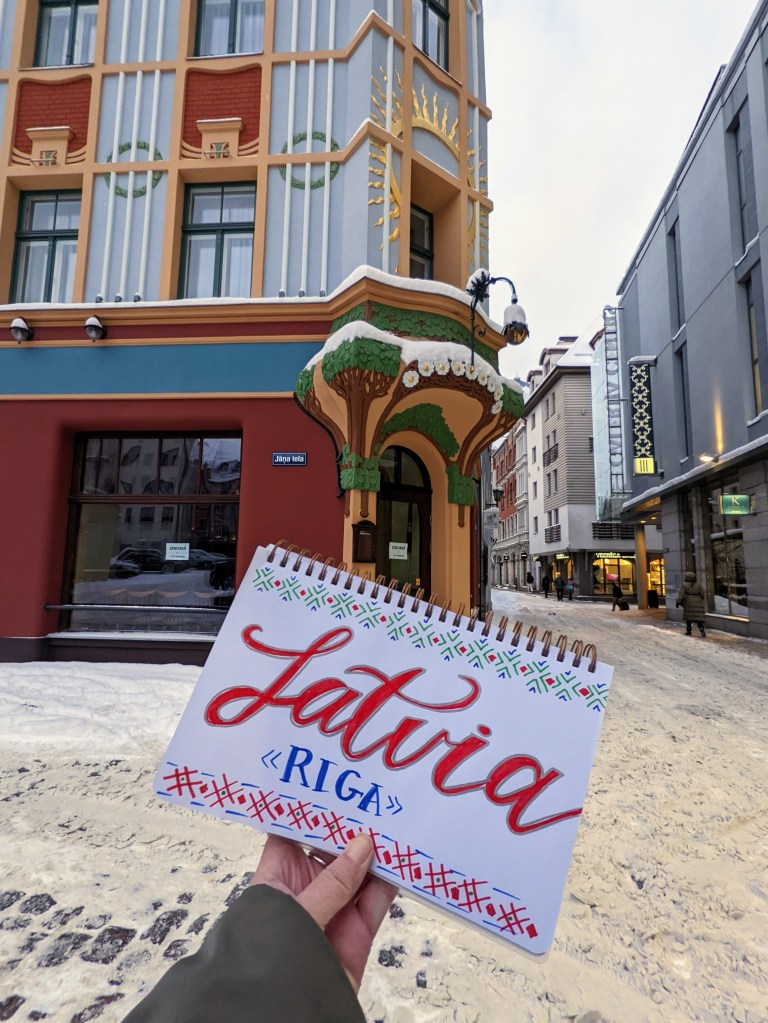 Jāņa iela
K
VECRĪGA
Latvia
«RIGA»